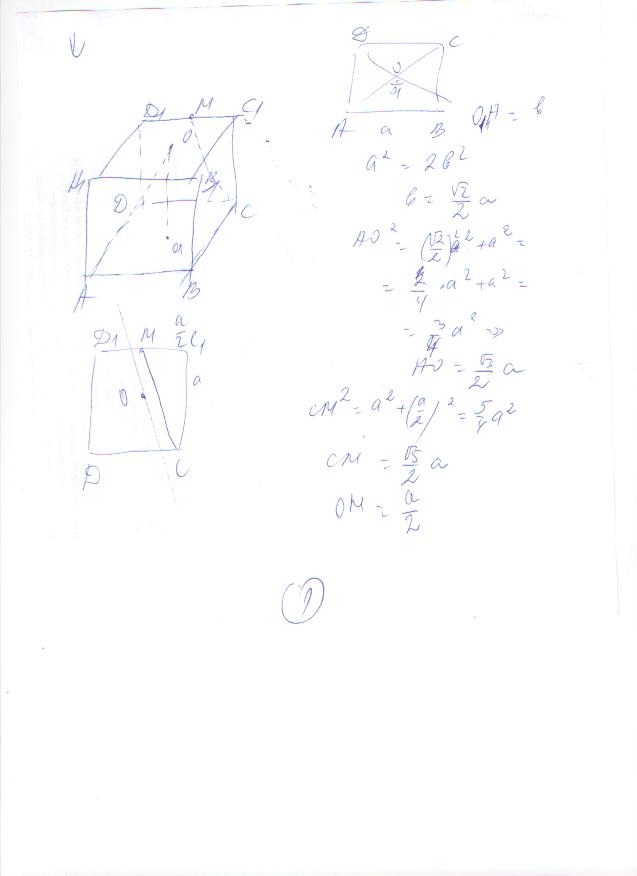 D C
O
O1
A a B O1A = b
a² = 2b²
b = √2/2 a
AO² = (√2/2)² a² + a² =
= 2/4 · a² + a² =
= 3/4 a² ⇒
AO = √3/2 a
CM² = a² + (a/2)² = 5/4 a²
CM = √5/2 a
OM = a/2
D1 M C1
O
A1 B1
D C
O1
A B
D1 M a/2 C1
O a
D C
1